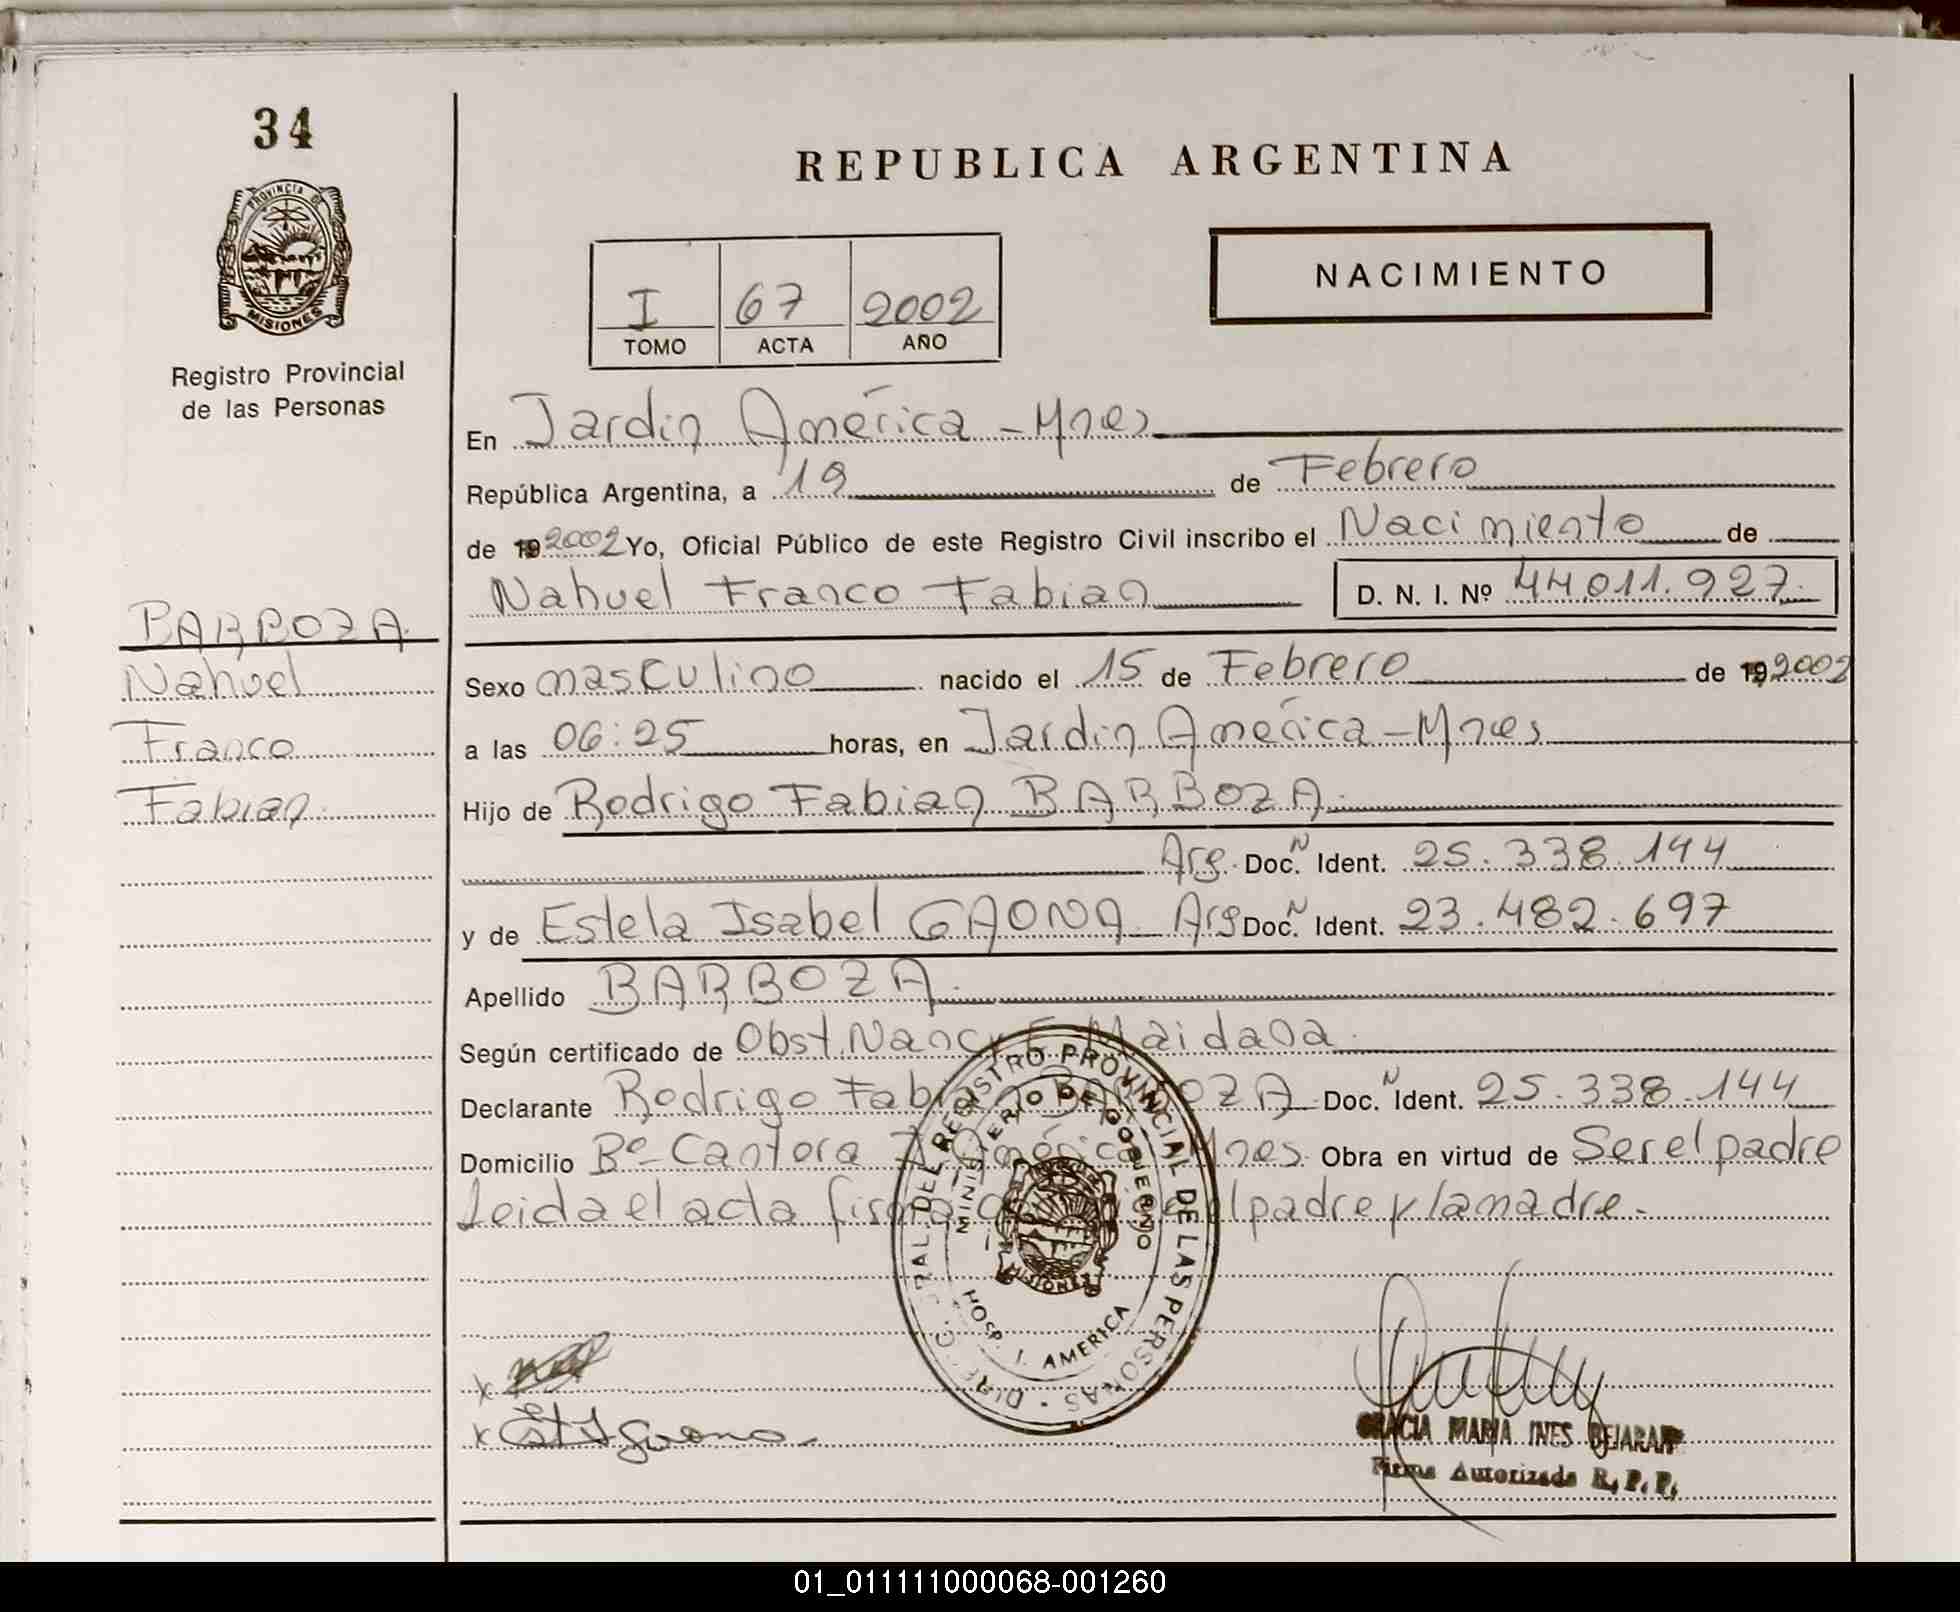 34
PROVINCIA DE
MISIONES
Registro Provincial
de las Personas
REPUBLICA ARGENTINA
NACIMIENTO
I 67 2002
TOMO ACTA AÑO
En Jardin América - Mnes
República Argentina, a 19 de Febrero
de 19 2002 Yo, Oficial Público de este Registro Civil inscribo el Nacimiento de
Nahuel Franco Fabian D. N. I. Nº 44.011.927
BARBOZA
Nahuel
Franco
Fabian
Sexo masculino nacido el 15 de Febrero de 19 2002
a las 06:25 horas, en Jardin América - Mnes
Hijo de Rodrigo Fabian BARBOZA
Arg. Doc. N Ident. 25.338.144
y de Estela Isabel GAONA Arg Doc. N Ident. 23.482.697
Apellido BARBOZA
Según certificado de Obst. Nancy E Maidana
Declarante Rodrigo Fabian BARBOZA Doc. N Ident. 25.338.144
Domicilio Bº Cantera J. América Mnes Obra en virtud de Ser el padre
Leida el acta firma el padre y la madre.
REGISTRO PROVINCIAL DE LAS PERSONAS
MINISTERIO DE GOBIERNO
MISIONES
HOSP. J. AMERICA
x
x Est I Gaona
GRACIA MARIA INES BEJARAN
Firma Autorizada R. P. P.
01_011111000068-001260